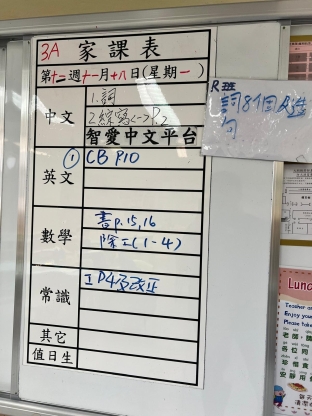 3A 家課表
第十二週十一月十八日(星期一)
中文
1.詞
2.綜寫<一>P.2
智愛中文平台
英文
① CB P10
數學
書p.15,16
除工(1-4)
常識
工P4及改正
其它
值日生
R班
詞8個及造句
Lun
Teacher an
Enjoy your
Please take
老師,
各位同
珍惜食
安靜用